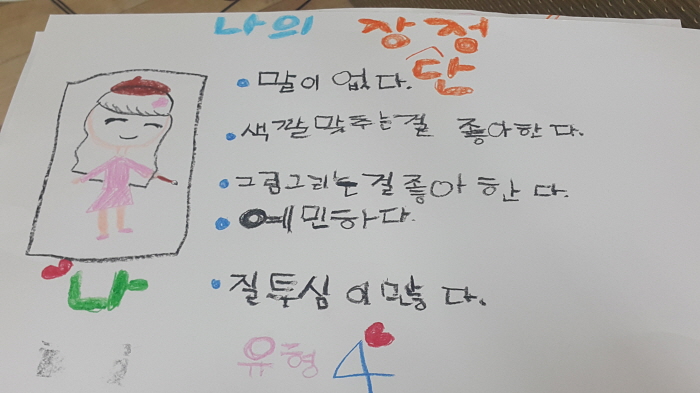 나의 장단점
말이 없다.
색깔 맞추는걸 좋아한다.
그림그리는걸 좋아한다.
예민하다.
질투심이많다.
나
유형 4